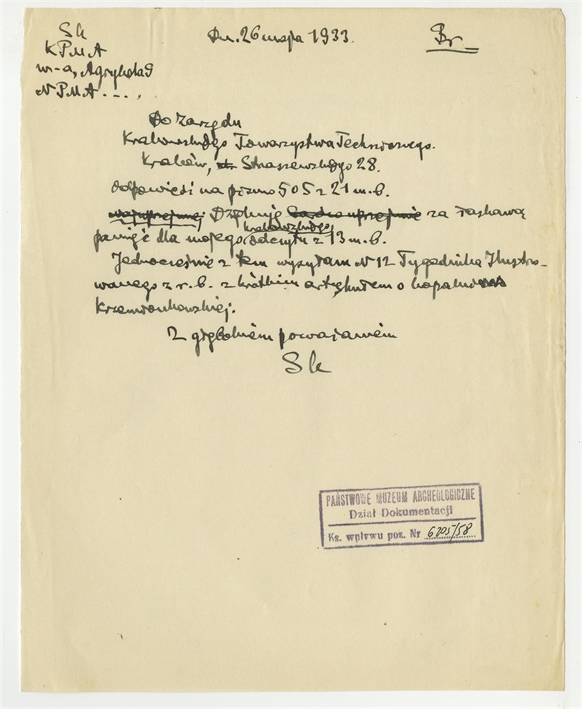 Sk
KPMA
w-a, Agrykola 9
NPMA ....
Dn. 26 marca 1933.
Br
Do Zarządu
Krakowskiego Towarzystwa Technicznego.
Kraków, Straszewskiego 28.
Odpowiedź na pismo 505 z 21 m.b.
Dziękuję za łaskawą
pamięć dla mojego krakowskiego odczytu z 13 m.b.
Jednocześnie z tem wysyłam N 12 Tygodnika Ilustro-
wanego z r.b. z krótkim artykułem o kopalni
Krzemionkowskiej.
Z głębokiem poważaniem
Sk
PAŃSTWOWE MUZEUM ARCHEOLOGICZNE
Dział Dokumentacji
Ks. wpływu poz. Nr 6205/58